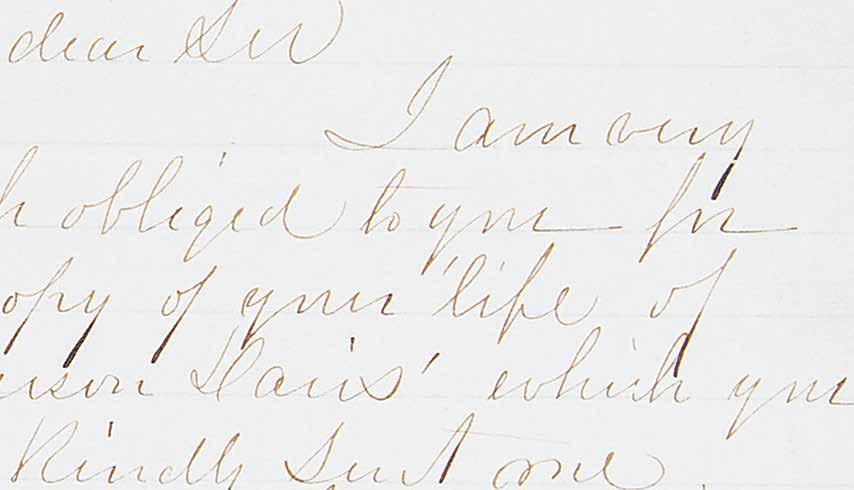 dear Sir
I am very
h obliged to you for
opy of your 'life of
erson Davis' which you
Kindly Sent me.